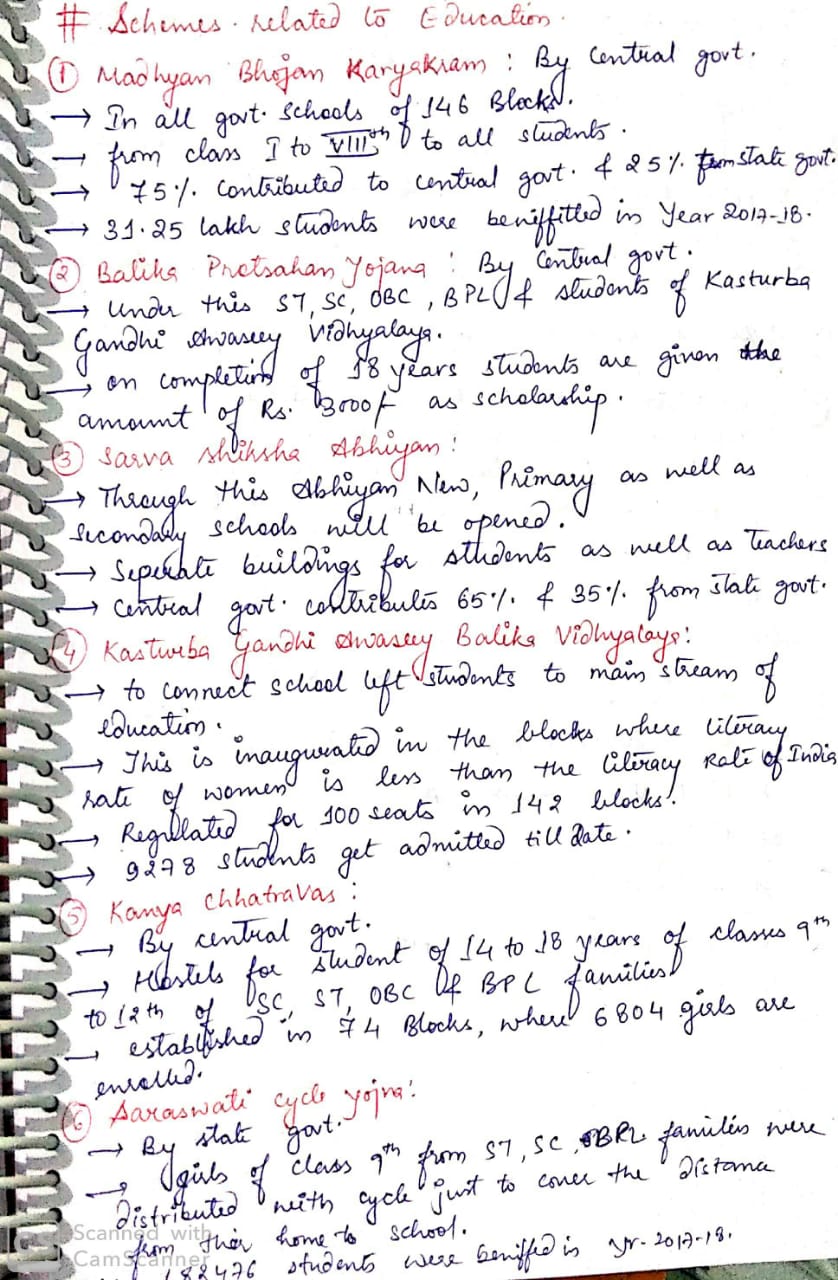 # Schemes related to Education.
① Madhyan Bhojan Karyakram : By Central govt.
→ In all govt. schools of 146 Blocks.
→ from class I to VIIIth to all students.
→ 75% contributed to central govt. & 25% from state govt.
→ 31.25 lakh students were beniffitted in Year 2017-18.
② Balika Protsahan Yojana : By Central govt.
→ Under this ST, SC, OBC, BPL & students of Kasturba
Gandhi Awasey Vidhyalaya.
→ on completion of 18 years students are given the
amount of Rs. 3000/- as scholarship.
③ Sarva Shiksha Abhiyan :
→ Through this Abhiyan New, Primary as well as
Secondary schools will be opened.
→ Seperate buildings for students as well as Teachers
→ Central govt. contributes 65% & 35% from state govt.
④ Kasturba Gandhi Awasey Balika Vidhyalaya :
→ to connect school left students to main stream of
education.
→ This is inaugurated in the blocks where literacy
rate of women is less than the literacy Rate of India
→ Regulated for 100 seats in 142 blocks.
→ 9278 students get admitted till date.
⑤ Kanya Chhatravas :
→ By central govt.
→ Hostels for student of 14 to 18 years of classes 9th
to 12th of SC, ST, OBC & BPL families
→ established in 74 Blocks, where 6804 girls are
enrolled.
⑥ Saraswati cycle yojna :
→ By state govt.
→ girls of class 9th from ST, SC, BPL families were
distributed with cycle just to cover the distance
from their home to school.
182476 students were beniffed in yr. 2017-18.
Scanned with
CamScanner